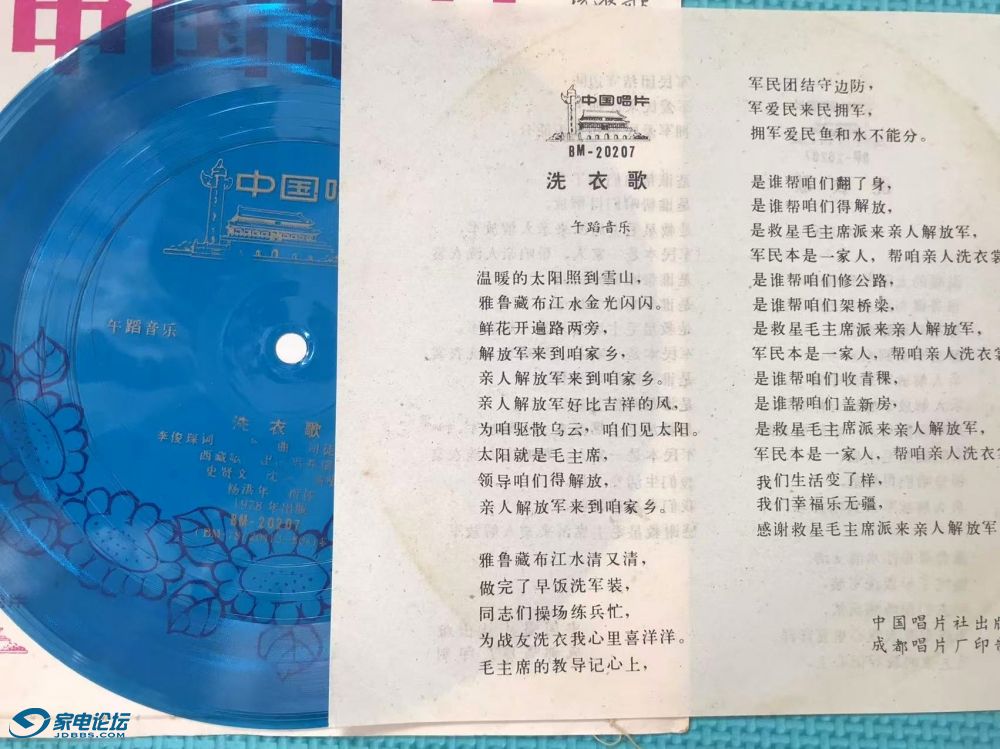 中国唱片
BM-20207
洗衣歌
午蹈音乐
温暖的太阳照到雪山，
雅鲁藏布江水金光闪闪。
鲜花开遍路两旁，
解放军来到咱家乡，
亲人解放军来到咱家乡。
亲人解放军好比吉祥的风，
为咱驱散乌云，咱们见太阳。
太阳就是毛主席，
领导咱们得解放，
亲人解放军来到咱家乡。
雅鲁藏布江水清又清，
做完了早饭洗军装，
同志们操场练兵忙，
为战友洗衣我心里喜洋洋。
毛主席的教导记心上，
军民团结守边防，
军爱民来民拥军，
拥军爱民鱼和水不能分。
是谁帮咱们翻了身，
是谁帮咱们得解放，
是救星毛主席派来亲人解放军，
军民本是一家人，帮咱亲人洗衣裳
是谁帮咱们修公路，
是谁帮咱们架桥梁，
是救星毛主席派来亲人解放军，
军民本是一家人，帮咱亲人洗衣
是谁帮咱们收青稞，
是谁帮咱们盖新房，
是救星毛主席派来亲人解放军，
军民本是一家人，帮咱亲人洗衣
我们生活变了样，
我们幸福乐无疆，
感谢救星毛主席派来亲人解放军
中国唱片社出版
成都唱片厂印
中国唱
午蹈音乐
洗衣歌
李俊琛词 曲
西藏
史贤文
杨洪年
1978年出版
BM-20207
家电论坛
JDBBS.COM